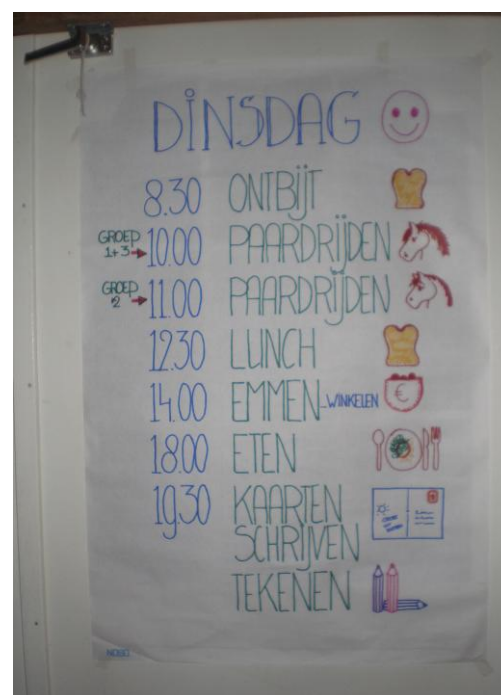 DINSDAG
8.30 ONTBIJT
GROEP 1+3 → 10.00 PAARDRIJDEN
GROEP 2 → 11.00 PAARDRIJDEN
12.30 LUNCH
14.00 EMMEN-WINKELEN €
18.00 ETEN
19.30 KAARTEN
SCHRIJVEN
TEKENEN
NOBO